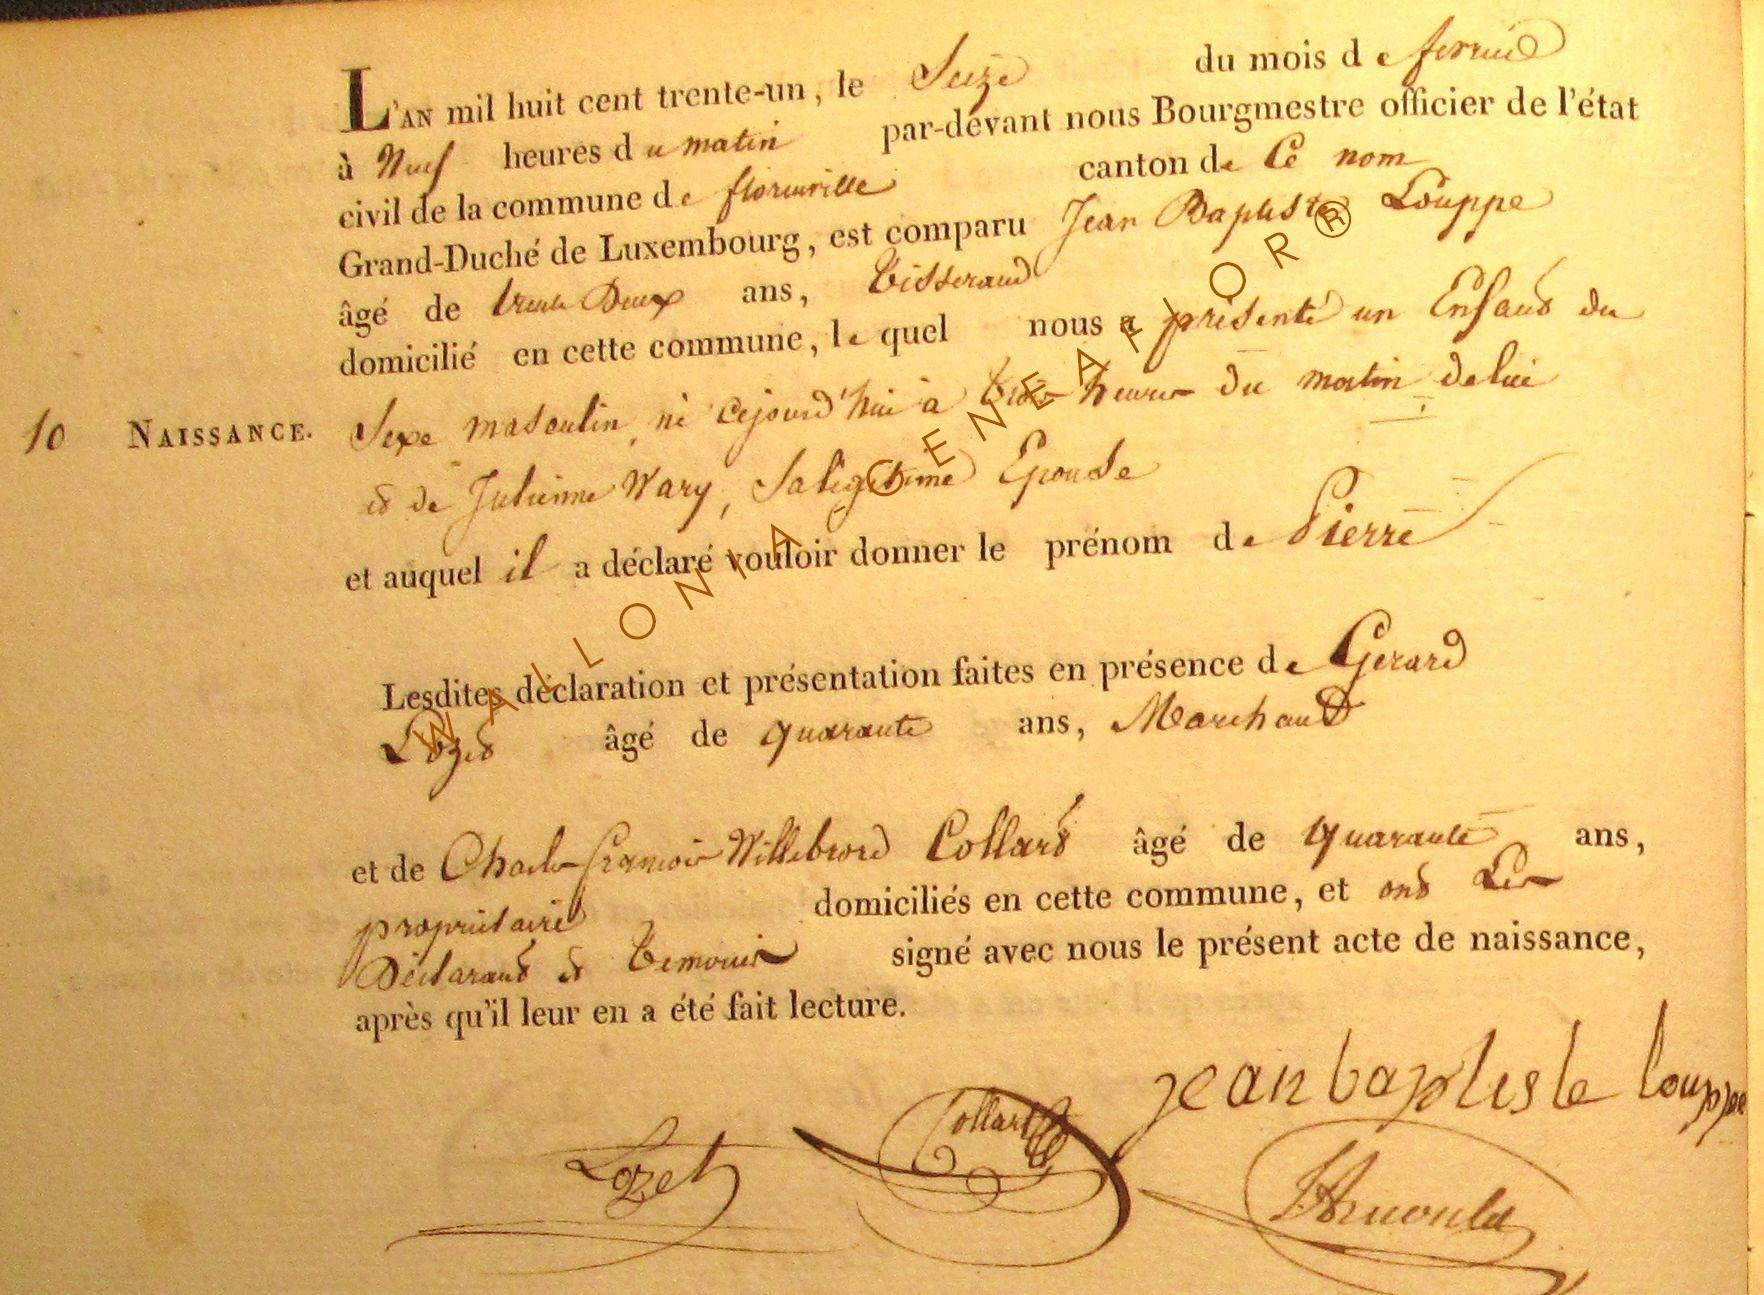 L'AN mil huit cent trente-un, le Seize du mois de fevrier
à Neuf heures du matin par-devant nous Bourgmestre officier de l'état
civil de la commune de florenville canton de Ce nom
Grand-Duché de Luxembourg, est comparu Jean Baptiste Louppe
âgé de trente Deux ans, Tisserand
domicilié en cette commune, le quel nous a présenté un Enfant du
10 NAISSANCE. Sexe masculin, né cejourd'hui à trois heures du matin de lui
et de Julienne Wary, Sa légitime Epouse
et auquel il a déclaré vouloir donner le prénom de Pierre
Lesdites déclaration et présentation faites en présence de Gerard
Lozet âgé de quarante ans, Marchand
et de Charles françois Willebrord Collard âgé de quarante ans,
propriétaire domiciliés en cette commune, et ont Les
Déclarant et temoins signé avec nous le présent acte de naissance,
après qu'il leur en a été fait lecture.
jean baptiste louppe
Lozet Collard
WALLONIA-GENEAFLOR®